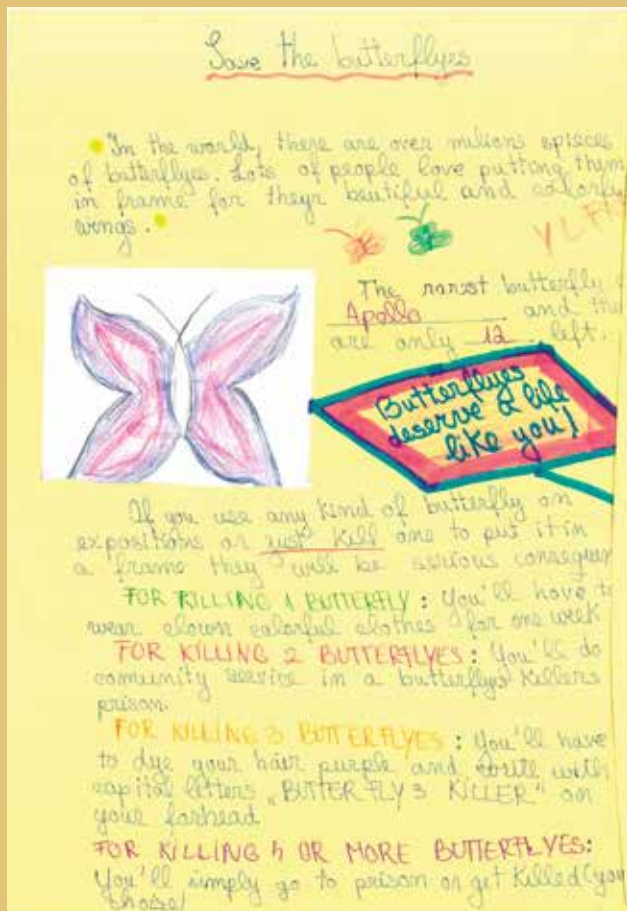 Save the butterflyes
In the world, there are over milions spieces
of butterflyes. Lots of people love putting thym
in frame for theyr beutiful and colorfu
wings.
The rarest butterfly
Apollo and the
are only 12 left.
Butterflyes
deserve a life
like you!
If you use any kind of butterfly on
expositions or just kill one to put it in
a frame they will be serious consequen
FOR KILLING 1 BUTTERFLY: You'll have to
wear clown colorful clothes for one week
FOR KILLING 2 BUTTERFLYES: You'll do
comunity service in a butterflys killers
prison.
FOR KILLING 3 BUTTERFLYES: You'll have
to dye your hair purple and write with
capital letters „BUTTERFLYS KILLER" on
your forhead
FOR KILLING 4 OR MORE BUTTERFLYES:
You'll simply go to prison or get killed (you
chose)